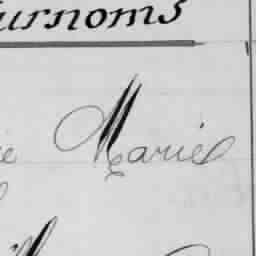 urnoms
ie Marie